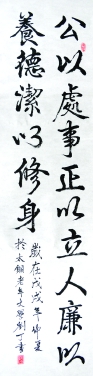 公以處事正以立人廉以
養德潔以修身
歲在戊戌年仲夏
於太鋼老年大學劉丁書